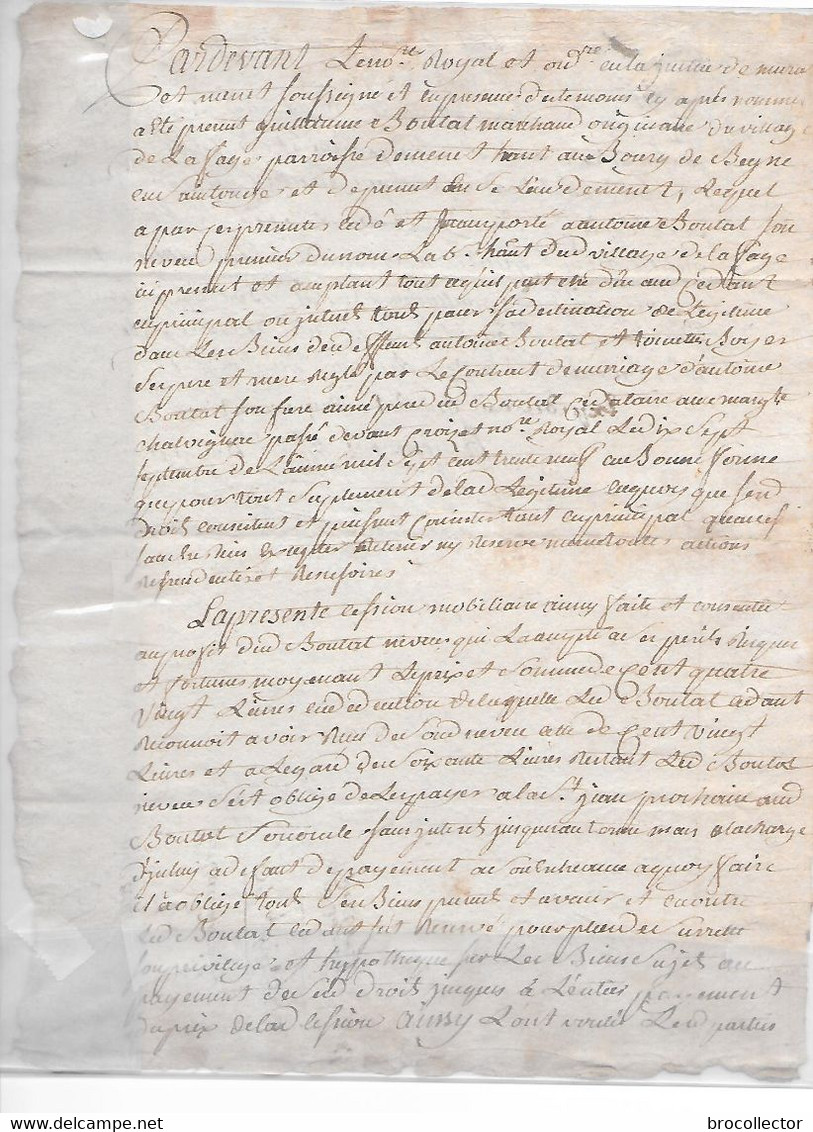 Pardevant Le no.re Royal et ord.re en la justice de mura
et nanet soussigné et en presence des temoins cy après nommes
a eté present guillaume Boutal marchand originaire du village
de La faye parroisse de menet hant au Bourg de Beyne
en saintonge et de present en ce Lieu de menet, Lequel
a par ses presentes cedé et transporté a antoine Boutal son
neveu premier du nom Lab.r hant aud village de la faye
icy present et acceptant tout ce qui peut etre dû aud cedant
en principal ou interet tout pour sa destination de Legitime
dans Les Biens de deffeunt antoine Boutal et toinette Boyer
ses pere et mere Reglé par Le contract de mariage d'antoine
Boutal son frere ainé pere dud Boutal Cedataire avec marg.te
chalvignac passé devant Croizet no.re Royal Le dix sept
septembre de L'année mil sept cent trente neuf en Bonne forme
que pour tout suplement de lad Legitime en quoy que sesd
droits consistent et puissent consister tant en principal qu'accessoires
sans en Rien excepter Retenir ny Reserve meme toutes actions
Rescindentes et Rescisoires
La presente cession mobiliaire ainsy faite et consentie
au profit dud Boutal neveu qui La accepte a ses perils Risques
et fortunes moyenant Le prix et somme de Cent quatre
vingt Livres en deduction de laquelle Led Boutal cedant
Reconnoit avoir Reçu de sond neveu celle de Cent vingt
Livres et a Legard des soixante Livres Restant Led Boutal
neveu s'est obligé de Les payer a la S.t jean prochain aud
Boutal son oncle sans interet jusqu'au terme mais a la charge
d'iceluy a defaut de payement a son Echeance a quoy faire
il a obligé tous ses Biens presents et avenir et en outre
Led Boutal cedant s'est Reservé pour plus de surreté
son privilege et hypotheque sur Les Biens sujets au
payement de sesd droits jusques à L'entier payement
du prix de lad cession ainsy L'ont voulu Lesd parties
brocollector